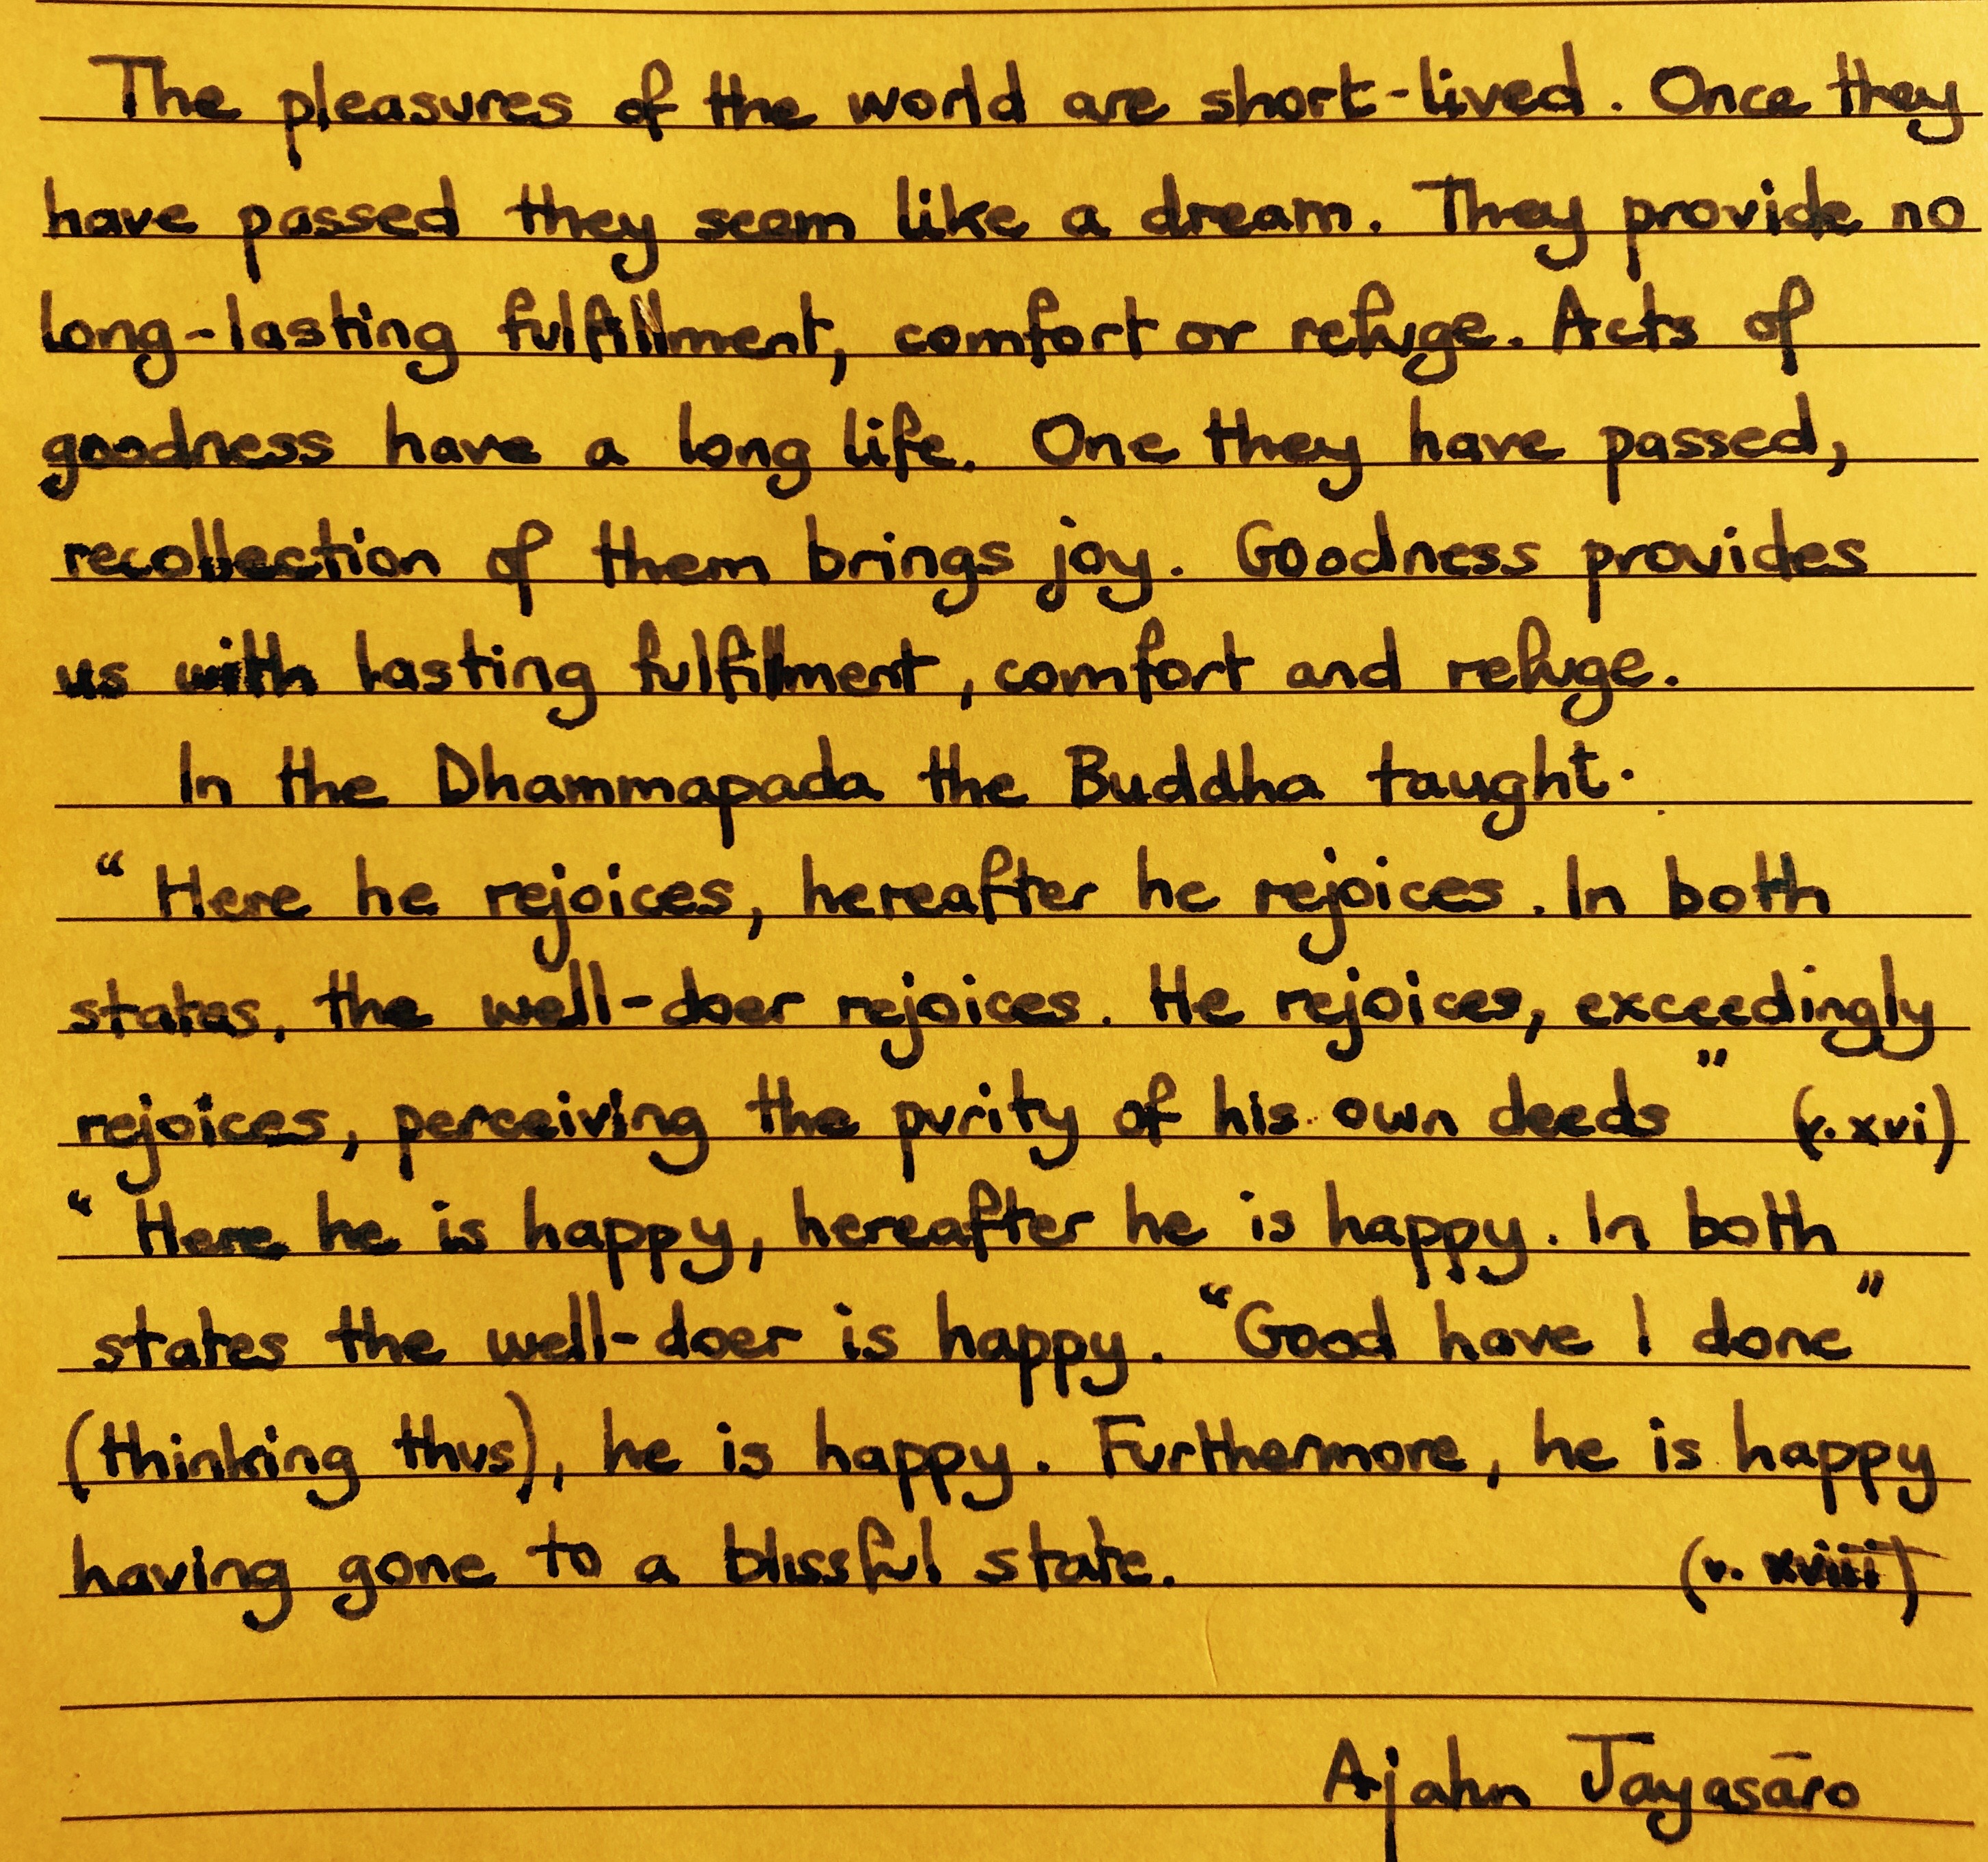 The pleasures of the world are short-lived. Once they
have passed they seem like a dream. They provide no
long-lasting fulfillment, comfort or refuge. Acts of
goodness have a long life. One they have passed,
recollection of them brings joy. Goodness provides
us with lasting fulfillment, comfort and refuge.
In the Dhammapada the Buddha taught.
"Here he rejoices, hereafter he rejoices. In both
states, the well-doer rejoices. He rejoices, exceedingly
rejoices, perceiving the purity of his own deeds" (v. xvi)
"Here he is happy, hereafter he is happy. In both
states the well-doer is happy. "Good have I done"
(thinking thus), he is happy. Furthermore, he is happy
having gone to a blissful state. (v. xviii)
Ajahn Jayasāro